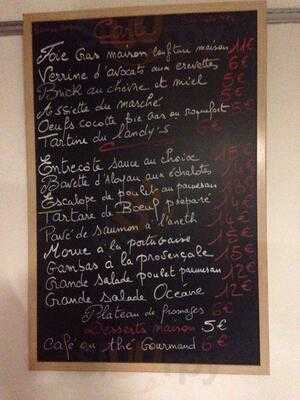 Carte
Foie Gras maison confiture maison 11€
Verrine d'avocats aux crevettes 6€
Brick au chèvre et miel 5€
Assiette du marché 5€
Oeufs cocotte foie Gras ou roquefort
Tartine du Landy's
Entrecôte sauce au choix 15€
Bavette d'Aloyau aux échalotes
Escalope de poulet au parmesan
Tartare de Boeuf préparé
Pavé de saumon à l'aneth
Morue à la
Gambas à la provençale 15€
Grande salade poulet parmesan 12€
Grande salade Océane 12€
Plateau de fromages 6€
Desserts maison 5€
Café ou thé Gourmand 6€